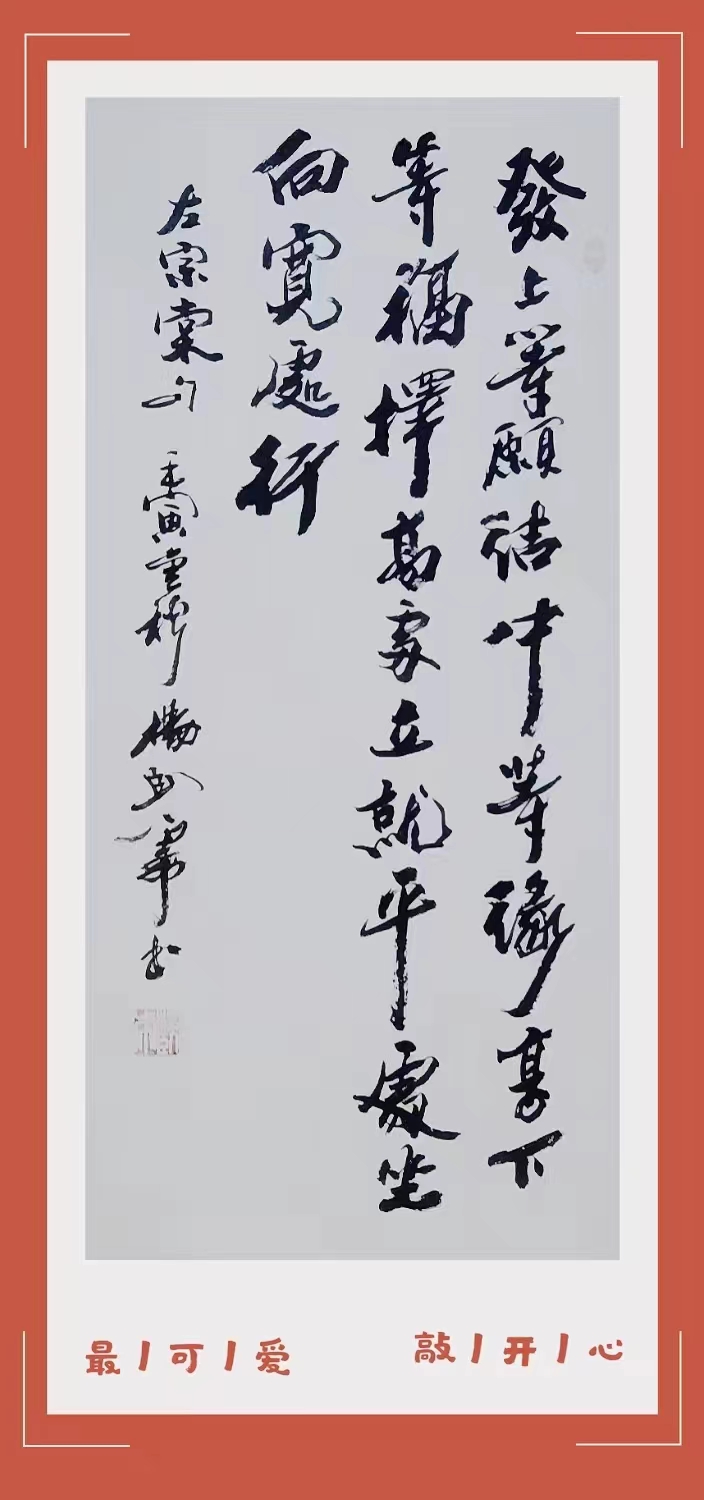 發上等願結中等緣享下
等福擇高處立就平處坐
向寬處行
左宗棠句 壬寅 書
最丨可丨爱
敲丨开丨心